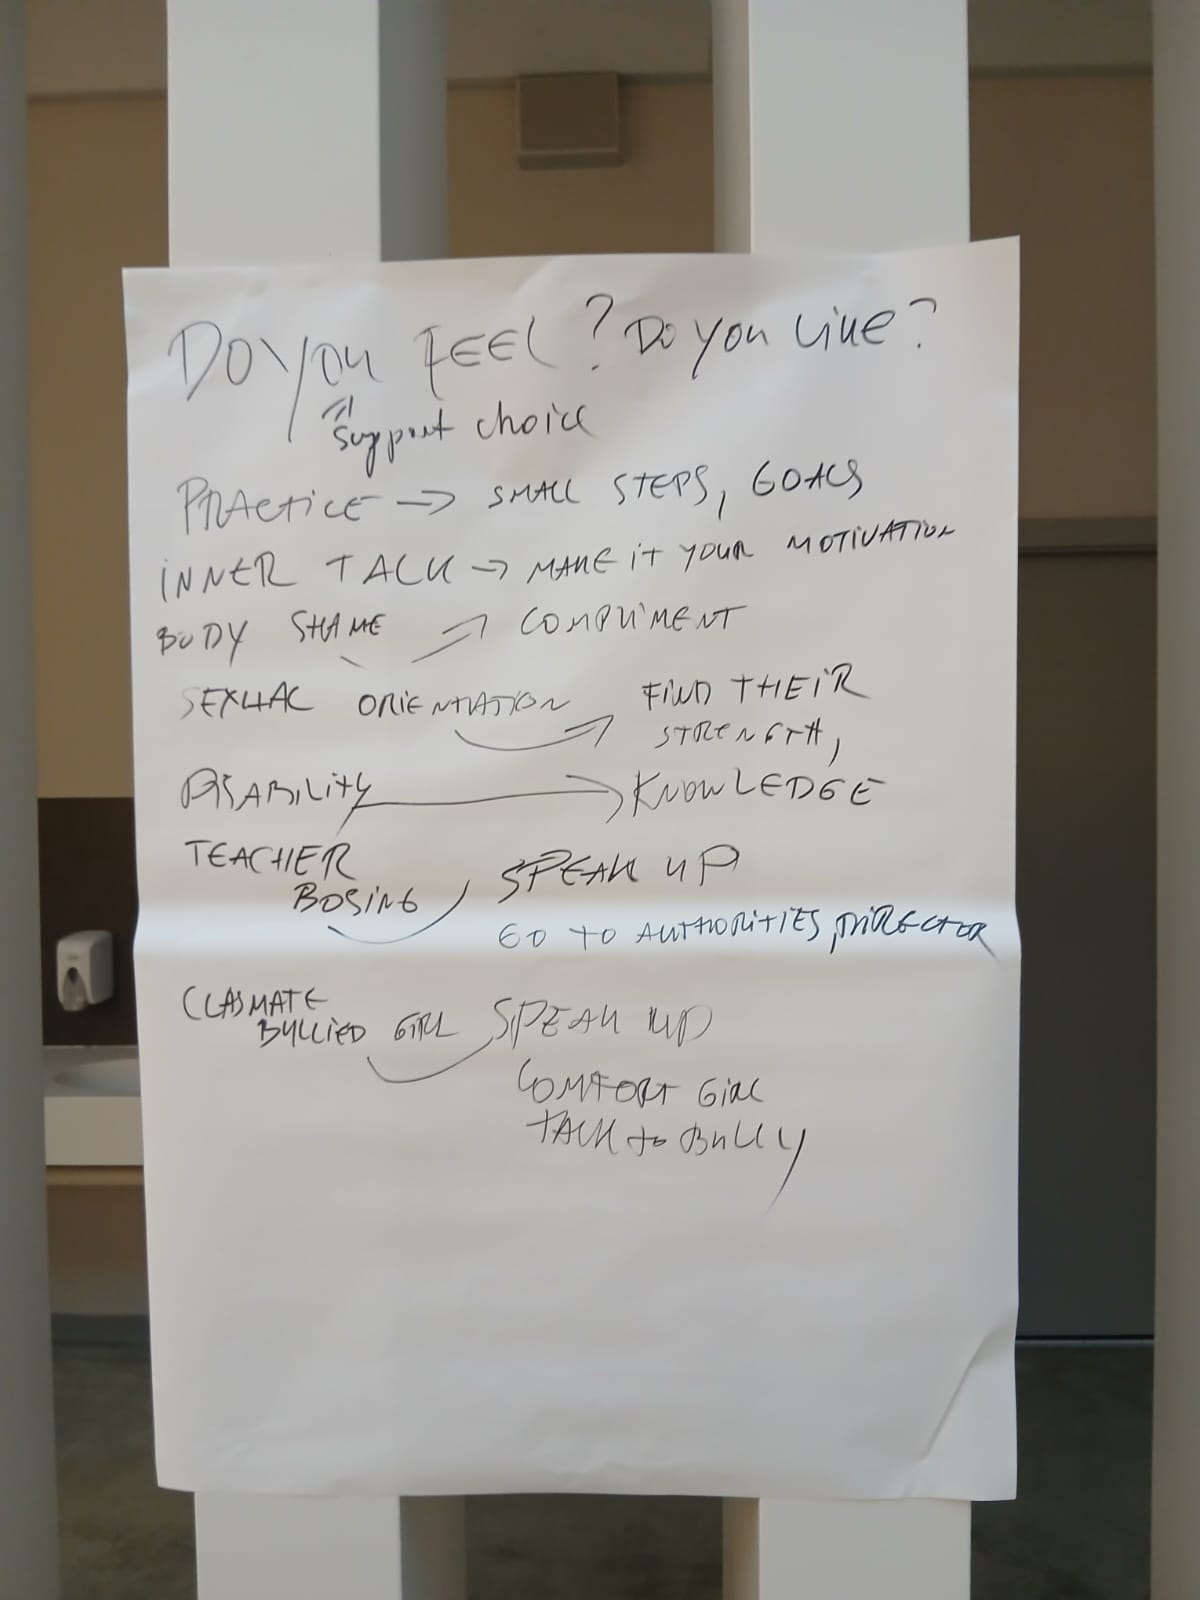 DO YOU FEEL? DO YOU LIKE?
support choice
PRACTICE → SMALL STEPS, GOALS
INNER TALK → MAKE IT YOUR MOTIVATION
BODY SHAME → COMPLIMENT
SEXUAL ORIENTATION → FIND THEIR
STRENGTH,
DISABILITY → KNOWLEDGE
TEACHER
BOSING SPEAK UP
GO TO AUTHORITIES, DIRECTOR
CLASMATE
BULLIED GIRL SPEAK UP
COMFORT GIRL
TALK to BULLY